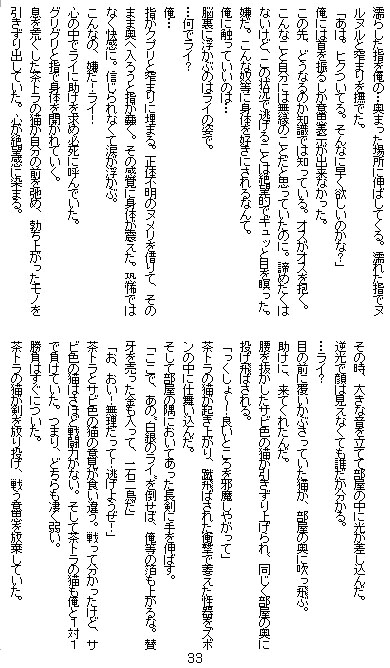 濡らした指を俺の…奥まった場所に伸ばしてくる。濡れた指でヌ
ルヌルと窄まりを撫でた。
「あは、ヒクついてる。そんなに早く欲しいのかな？」
俺には首を振るしか意思表示が出来なかった。
この先、どうなるのか知識では知っている。オスがオスを抱く。
こんなこと自分には無縁のことだと思っていたのに。諦めたくは
ないけど、この状況で逃げることは絶望的でギュッと目を瞑った。
嫌だ。こんな奴等に身体を好きにされるなんて。
俺に触っていいのは…。
脳裏に浮かぶのはライの姿で。
…何でライ？
俺…
指がクプリと窄まりに埋まる。正体不明のヌメリを借りて、その
まま奥へ入ろうと指が蠢く。その感覚に身体が震えた。恐怖では
なく快感に。信じられなくて涙が浮かぶ。
こんなの、嫌だ！ライ！
心の中でライに助けを求め必死に呼んでいた。
グリグリと指で身体を開かれていく。
息を荒くした茶トラの猫が自分の前を弛め、勃ち上がったモノを
引きずり出していた。心が絶望感に染まる。
その時、大きな音を立てて部屋の中に光が差し込んだ。
逆光で顔は見えなくても誰だか分かる。
…ライ？
目の前に覆いかぶさっていた猫が、部屋の奥に吹っ飛ぶ。
助けに、来てくれたんだ。
腰を抜かしたサビ色の猫が引きずり上げられ、同じく部屋の奥に
投げ飛ばされる。
「っくしょー！良いところを邪魔しやがって」
茶トラの猫が起き上がり、蹴飛ばされた衝撃で萎えた性器をズボ
ンの中に仕舞い込んだ。
そして部屋の隅においてあった長剣に手を伸ばす。
「ここで、あの、白銀のライを倒せば、俺等の泊も上がるな。賛
牙を売った金も入って、一石二鳥だ」
「お、おい！無理だって！逃げようぜ！」
茶トラとサビ色の猫の意見が食い違う。戦って分かったけど、サ
ビ色の猫はさほど戦闘力がない。そして茶トラの猫も俺と１対１
で負けていた。つまり、どちらも凄く弱い。
勝負はすぐについた。
茶トラの猫が剣を放り投げ、戦う意思を放棄していた。
33